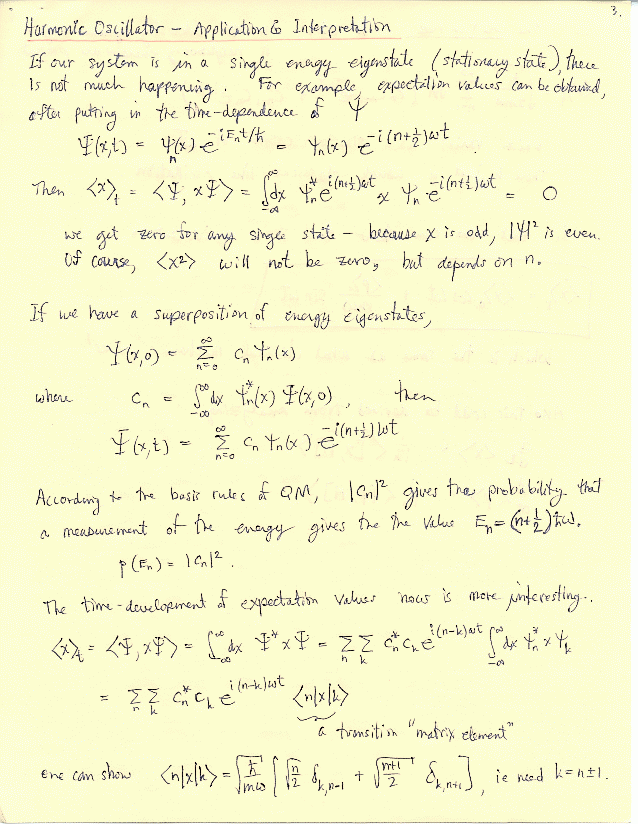 3.
Harmonic Oscillator – Application & Interpretation
If our system is in a single energy eigenstate (stationary state), there
is not much happening. For example, expectation values can be obtained,
after putting in the time-dependence of Ψ
Ψ(x,t) = ψₙ(x) e^{-iEₙt/ħ} = ψₙ(x) e^{-i(n+½)ωt}
Then ⟨x⟩ₜ = ⟨Ψ, xΨ⟩ = ∫_{-∞}^{∞} dx ψₙ* e^{i(n+½)ωt} x ψₙ e^{-i(n+½)ωt} = 0
we get zero for any single state – because x is odd, |ψ|² is even.
Of course, ⟨x²⟩ will not be zero, but depends on n.
If we have a superposition of energy eigenstates,
Ψ(x,0) = Σ_{n=0}^{∞} cₙ ψₙ(x)
where cₙ = ∫_{-∞}^{∞} dx ψₙ*(x) Ψ(x,0), then
Ψ(x,t) = Σ_{n=0}^{∞} cₙ ψₙ(x) e^{-i(n+½)ωt}
According to the basic rules of QM, |cₙ|² gives the probability that
a measurement of the energy gives the the value Eₙ = (n+½)ħω.
p(Eₙ) = |cₙ|².
The time-development of expectation values now is more interesting.
⟨x⟩ₜ = ⟨Ψ, xΨ⟩ = ∫_{-∞}^{∞} dx Ψ* x Ψ = Σₙ Σₖ cₙ* cₖ e^{i(n-k)ωt} ∫_{-∞}^{∞} dx ψₙ* x ψₖ
= Σₙ Σₖ cₙ* cₖ e^{i(n-k)ωt} ⟨n|x|k⟩
a transition "matrix element"
one can show ⟨n|x|k⟩ = √(ħ/mω) [ √(n/2) δ_{k,n-1} + √((n+1)/2) δ_{k,n+1} ], ie need k = n±1.